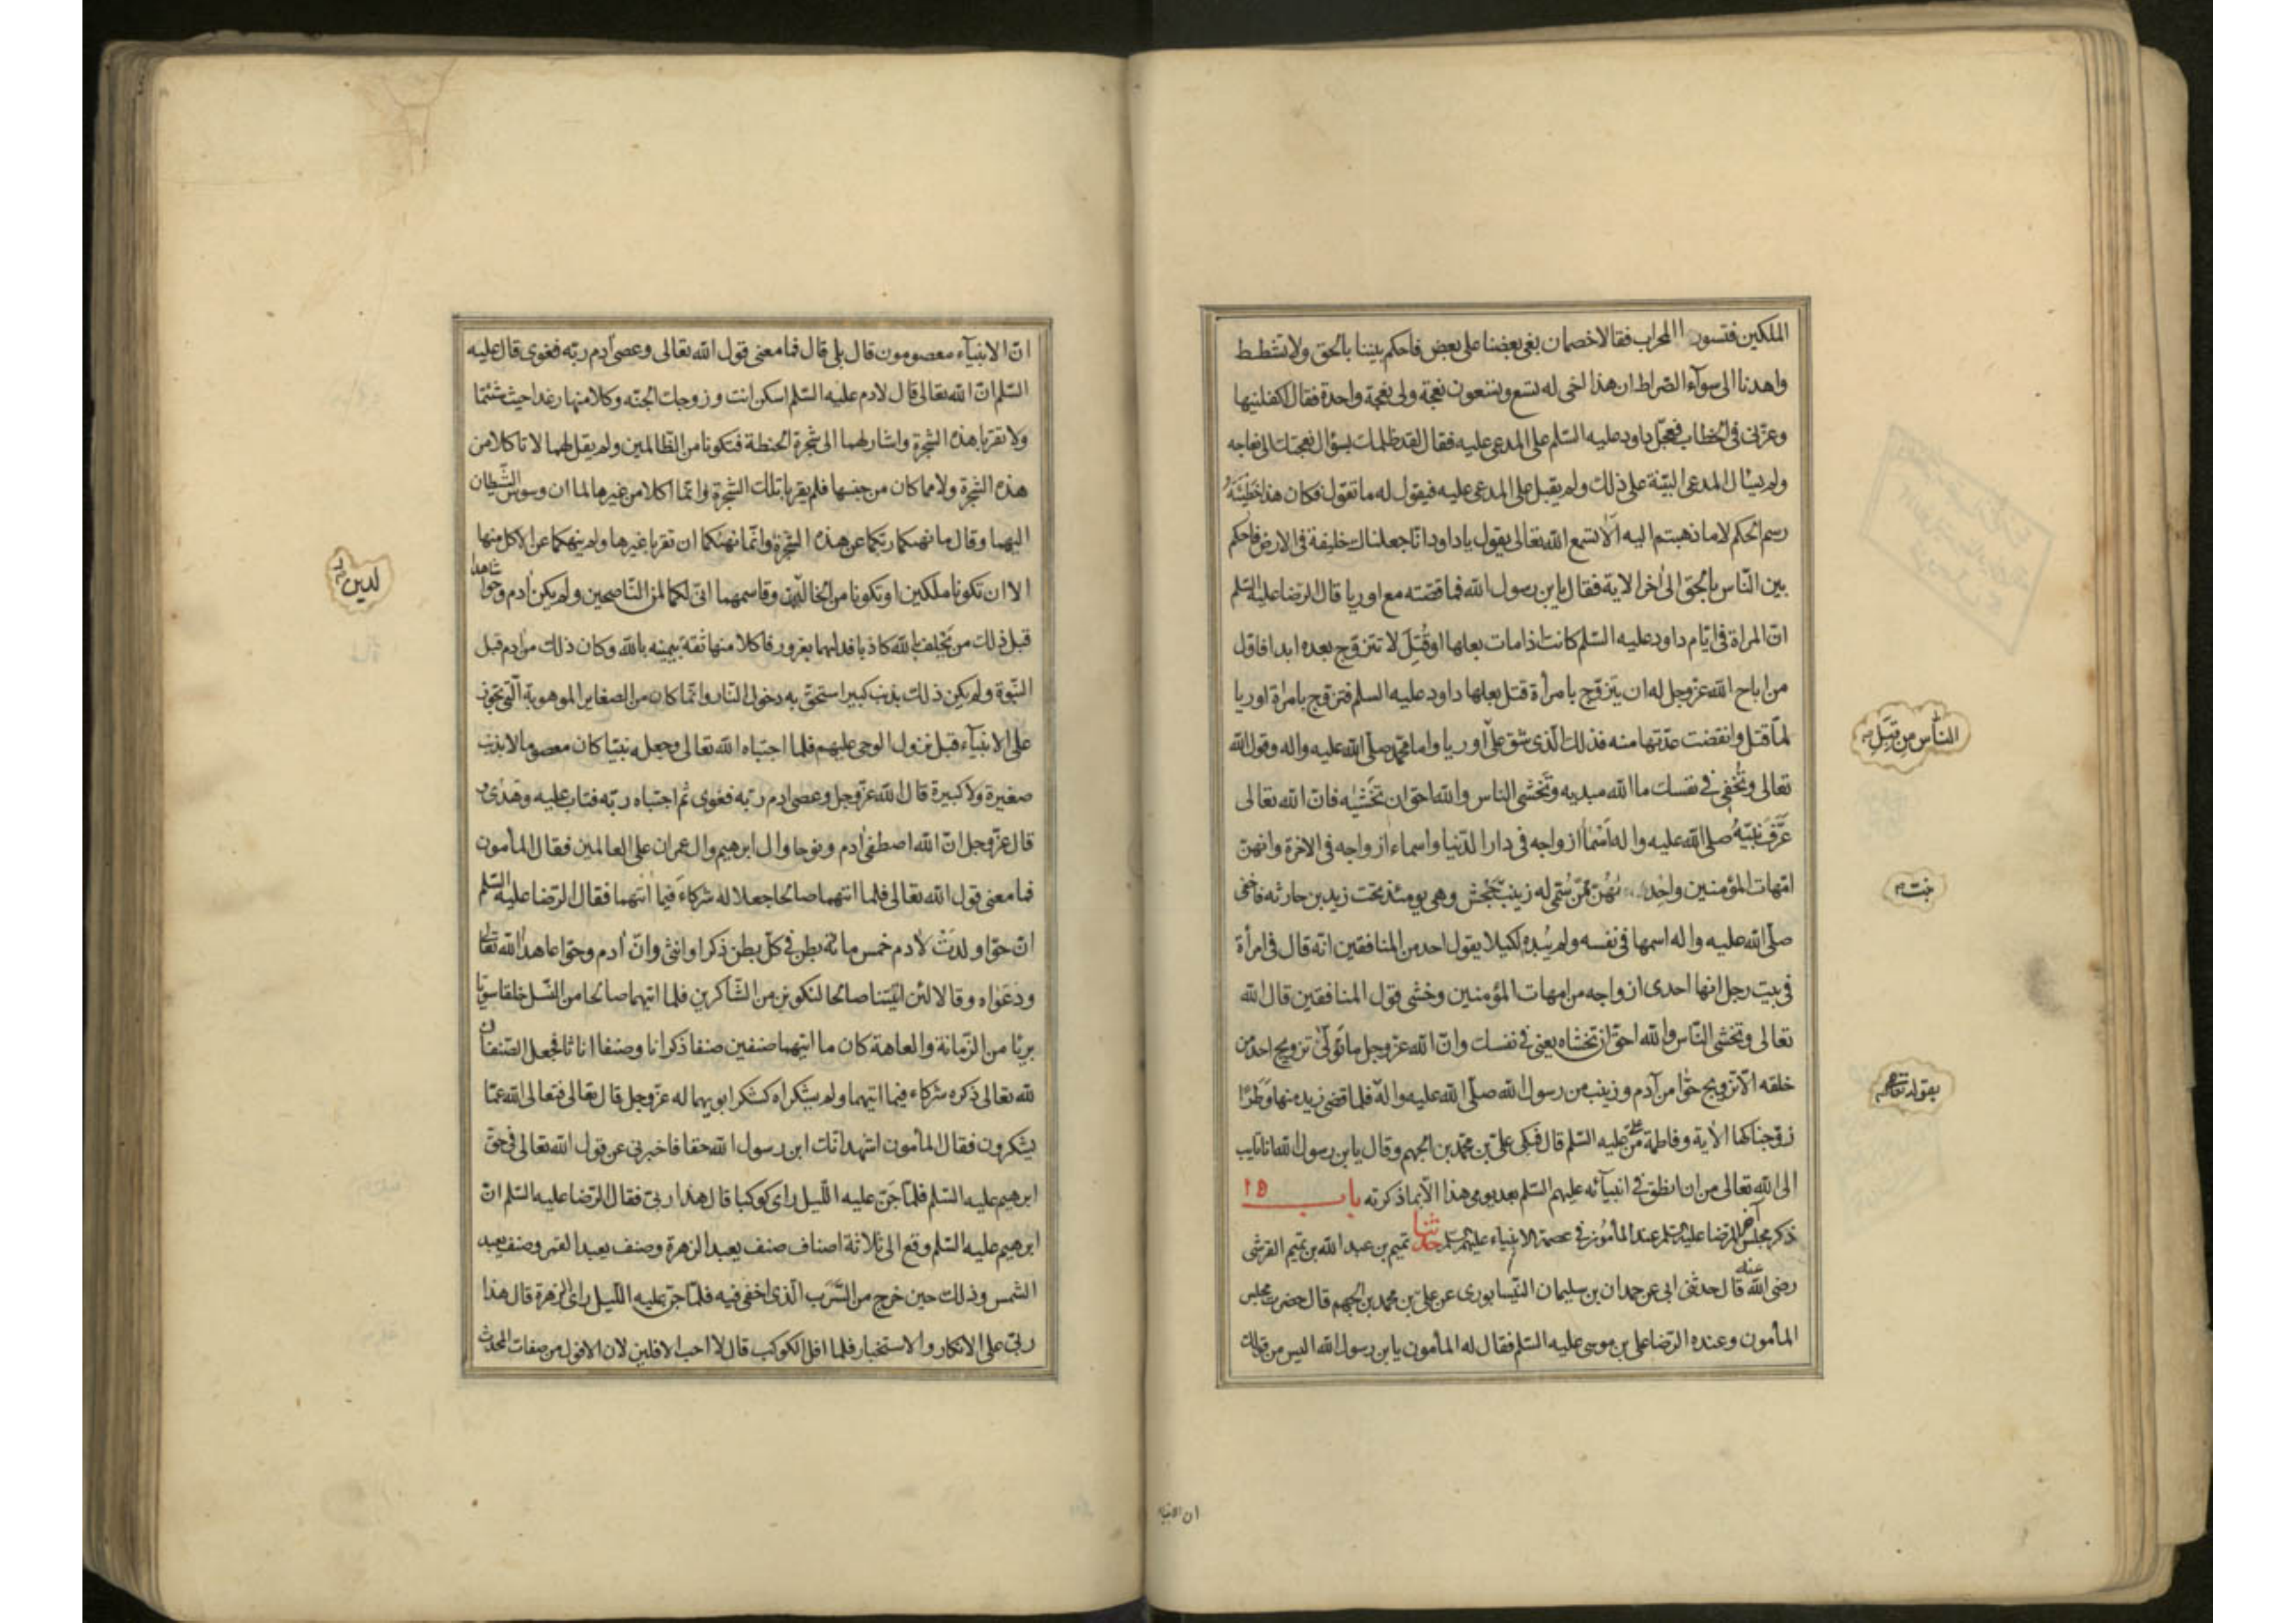 الملكين فتسورا المحراب فقالا خصمان بغى بعضنا على بعض فاحكم بيننا بالحق ولا تشطط
واهدنا الى سوآء الصراط ان هذا اخى له تسع وتسعون نعجة ولى نعجة واحدة فقال اكفلنيها
وعزنى فى الخطاب فعجل داود عليه السّلم على المدعى عليه فقال لقد ظلمك بسؤال نعجتك الى نعاجه
ولم يسئال المدعى البيّنة على ذلك ولم يقبل على المدعى عليه فيقول له ما تقول فكان هذا خطيئة
رسم الحكم لا ما ذهبتم اليه ألا تسمع الله تعالى يقول يا داود انا جعلناك خليفة فى الارض فاحكم
بين النّاس بالحق الى اخر الاية فقال يا بن رسول الله فما قصّته مع اوريا قال الرضا عليه السّلم
انّ المراة فى ايّام داود عليه السّلم كانت اذا مات بعلها او قُتِلَ لا تتزوّج بعده ابدا فاوّل
من اباح الله عزّ وجل له ان يتزوّج بامرأة قتل بعلها داود عليه السلم فتزوج بامراة اوريا
لمّا قتل وانقضت عدّتها منه فذلك الّذى شق على اوريا واما محمّد صلّى الله عليه واله وقول الله
الناس من قِبَلِ
تعالى وتُخفى فى نفسك ما الله مبديه وتَخشى الناس والله احق ان تَخشيه فانّ الله تعالى
عَرَّفَ نبيّهُ صلى الله عليه واله أسْمآ ازواجه فى دار الدّنيا واسماء ازواجه فى الاخرة وانهنّ
امّهات المؤمنين واحدى نهُن مَمّن سُمّى له زينب جَحْش وهى يومئذ تحت زيد بن حارثه فاخفى
بنت
صلّى الله عليه واله اسمها فى نفسه ولم يُبده لكيلا يقول احد من المنافقين انّه قال فى امرأة
فى بيت رجل انها احدى ازواجه من امهات المؤمنين وخشى قول المنافقين قال الله
تعالى وتخشى النّاس والله احقّ ان تخشاه يعنى فى نفسك وانّ الله عزّ وجل ما تولّى تزويج احد من
خلقه الّا تزويج حوّا من آدم وزينب من رسول الله صلّى الله عليه واله فلما قضى زيد منها وَطَرًا
بقوله تعالى
زوّجناكها الاية وفاطمة من على عليه السّلم قال فبكى علىّ بن محمّد بن الجهم وقال يا بن رسول الله انا تايب
الى الله تعالى من ان انطق فى انبيآئه عليهم السّلم بعد يومى هذا الّا بما ذكرته باب ١٥
ذكر مجلس آخر للرضا عليه السّلم عند المأمون فى عصمة الانبياء عليهم السّلم حدثنا تميم بن عبد الله بن تميم القرشى
رضى الله عنه قال حدثنى ابى عن حمدان بن سليمان النّيسابورى عن على بن محمد بن الجهم قال حضرت مجلس
المأمون وعنده الرّضا على بن موسى عليه السّلم فقال له المأمون يا بن رسول الله اليس من قولك
ان الانبياء
انّ الانبيآء معصومون قال بلى قال فما معنى قول الله تعالى وعصى آدم ربّه فغوى قال عليه
السّلم انّ الله تعالى قال لادم عليه السّلم اسكن انت وزوجك الجنّه وكلا منها رغدا حيث شئتما
ولا تقربا هذه الشجرة واشار لهما الى شجرة الحنطة فتكونا من الظّالمين ولم يقل لهما لا تاكلا من
هذه الشجرة ولا مما كان من جنسها فلم يقربا تلك الشجرة وانّما اكلا من غيرها لما ان وسوس الشّيطان
اليهما وقال ما نهيكما ربّكما عن هذه الشجرة وانّما نهيكما ان تقربا غيرها ولم ينهكما عن الاكل منها
الا ان تكونا ملكين او تكونا من الخالدين وقاسمهما انّى لكما لمن النّاصحين ولم يكن آدم وحوا شاهدا
لدين
قبل ذلك من يَحْلِف بالله كاذبا فدلّيهما بغرور فاكلا منها ثقة بيمينه بالله وكان ذلك من آدم قبل
النّبوة ولم يكن ذلك بذنب كبير استحقّ به دخول النّار وانّما كان من الصغاير الموهوبة الّتى تجوز
على الانبيآء قبل نزول الوحى عليهم فلما اجتباه الله تعالى وجعله نبيّا كان معصوما لا يذنب
صغيرة ولا كبيرة قال الله عزّ وجل وعصى آدم ربّه فغوى ثم اجتباه ربّه فتاب عليه وهدى و
قال عزّ وجل انّ الله اصطفى آدم ونوحا وال ابرهيم وال عمران على العالمين فقال المأمون
فما معنى قول الله تعالى فلما اتيهما صالحا جعلا له شركاءَ فيما اتيهما فقال الرّضا عليه السّلم
انّ حوّا ولدَتْ لآدم خمس مائة بطن فى كلّ بطن ذكرا وانثى وانّ آدم وحوّا عاهدا الله تعالى
ودعَواه وقالا لئن اتيتنا صالحا لنكونن من الشّاكرين فلما اتيهما صالحا من النّسل خلقا سويّا
بريّا من الزّمانة والعاهة كان ما اتيهما صنفين صنفا ذكرانا وصنفا اناثا فجعل الصّنفان
لله تعالى ذكره شركاء فيما اتيهما ولم يشكراه كشكر ابويهما له عزّ وجل قال تعالى فتعالى الله عمّا
يشركون فقال المأمون اشهد انّك ابن رسول الله حقا فاخبرنى عن قول الله تعالى فى حقّ
ابرهيم عليه السّلم فلمّا جَنّ عليه اللّيل راى كوكبا قال هذا ربّى فقال الرّضا عليه السّلم انّ
ابرهيم عليه السّلم وقع الى ثلاثة اصناف صنف يعبد الزهرة وصنف يعبد القمر وصنف يعبد
الشمس وذلك حين خرج من السَّرَب الّذى اخفى فيه فلمّا جنّ عليه اللّيل راى الزهرة قال هذا
ربّى على الانكار والاستخبار فلما افل الكوكب قال لا احب الافلين لان الافول من صفات المحدث